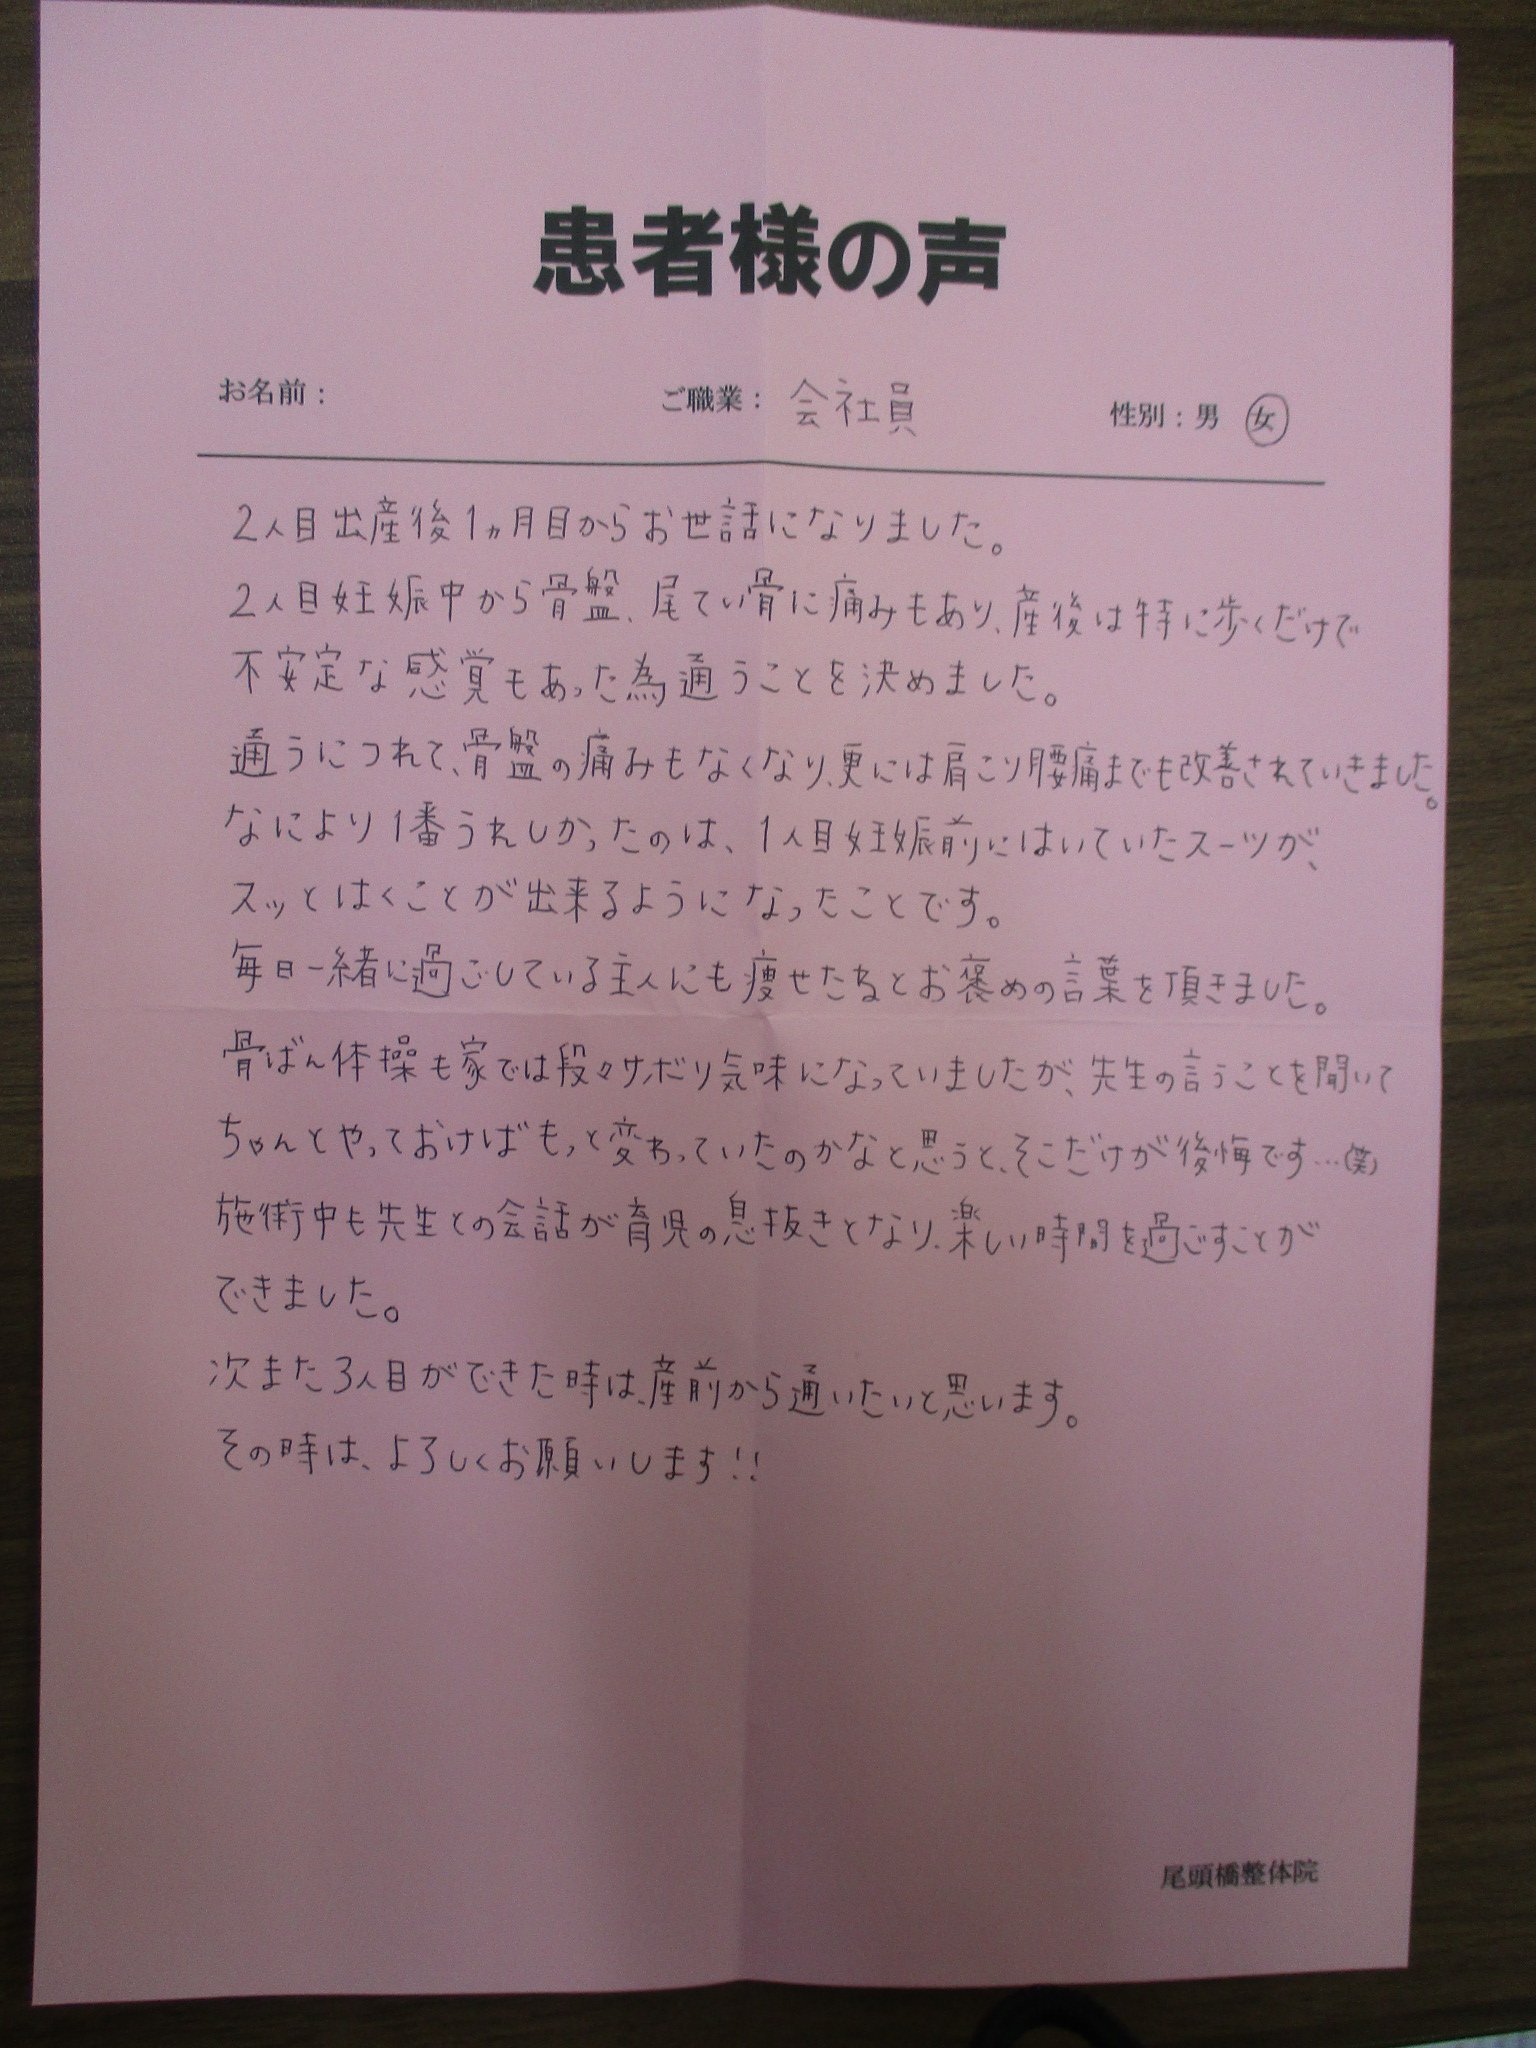 患者様の声
お名前： ご職業： 会社員 性別：男 女
2人目出産後1ヵ月目からお世話になりました。
2人目妊娠中から骨盤、尾てい骨に痛みもあり、産後は特に歩くだけで
不安定な感覚もあった為通うことを決めました。
通うにつれて、骨盤の痛みもなくなり、更には肩こり腰痛までも改善されていきました。
なにより1番うれしかったのは、1人目妊娠前にはいていたスーツが、
スッとはくことが出来るようになったことです。
毎日一緒に過ごしている主人にも痩せたねとお褒めの言葉を頂きました。
骨ばん体操も家では段々サボり気味になっていましたが、先生の言うことを聞いて
ちゃんとやっておけばもっと変わっていたのかなと思うと、そこだけが後悔です…(笑)
施術中も先生との会話が育児の息抜きとなり、楽しい時間を過ごすことが
できました。
次また3人目ができた時は、産前から通いたいと思います。
その時は、よろしくお願いします!!
尾頭橋整体院